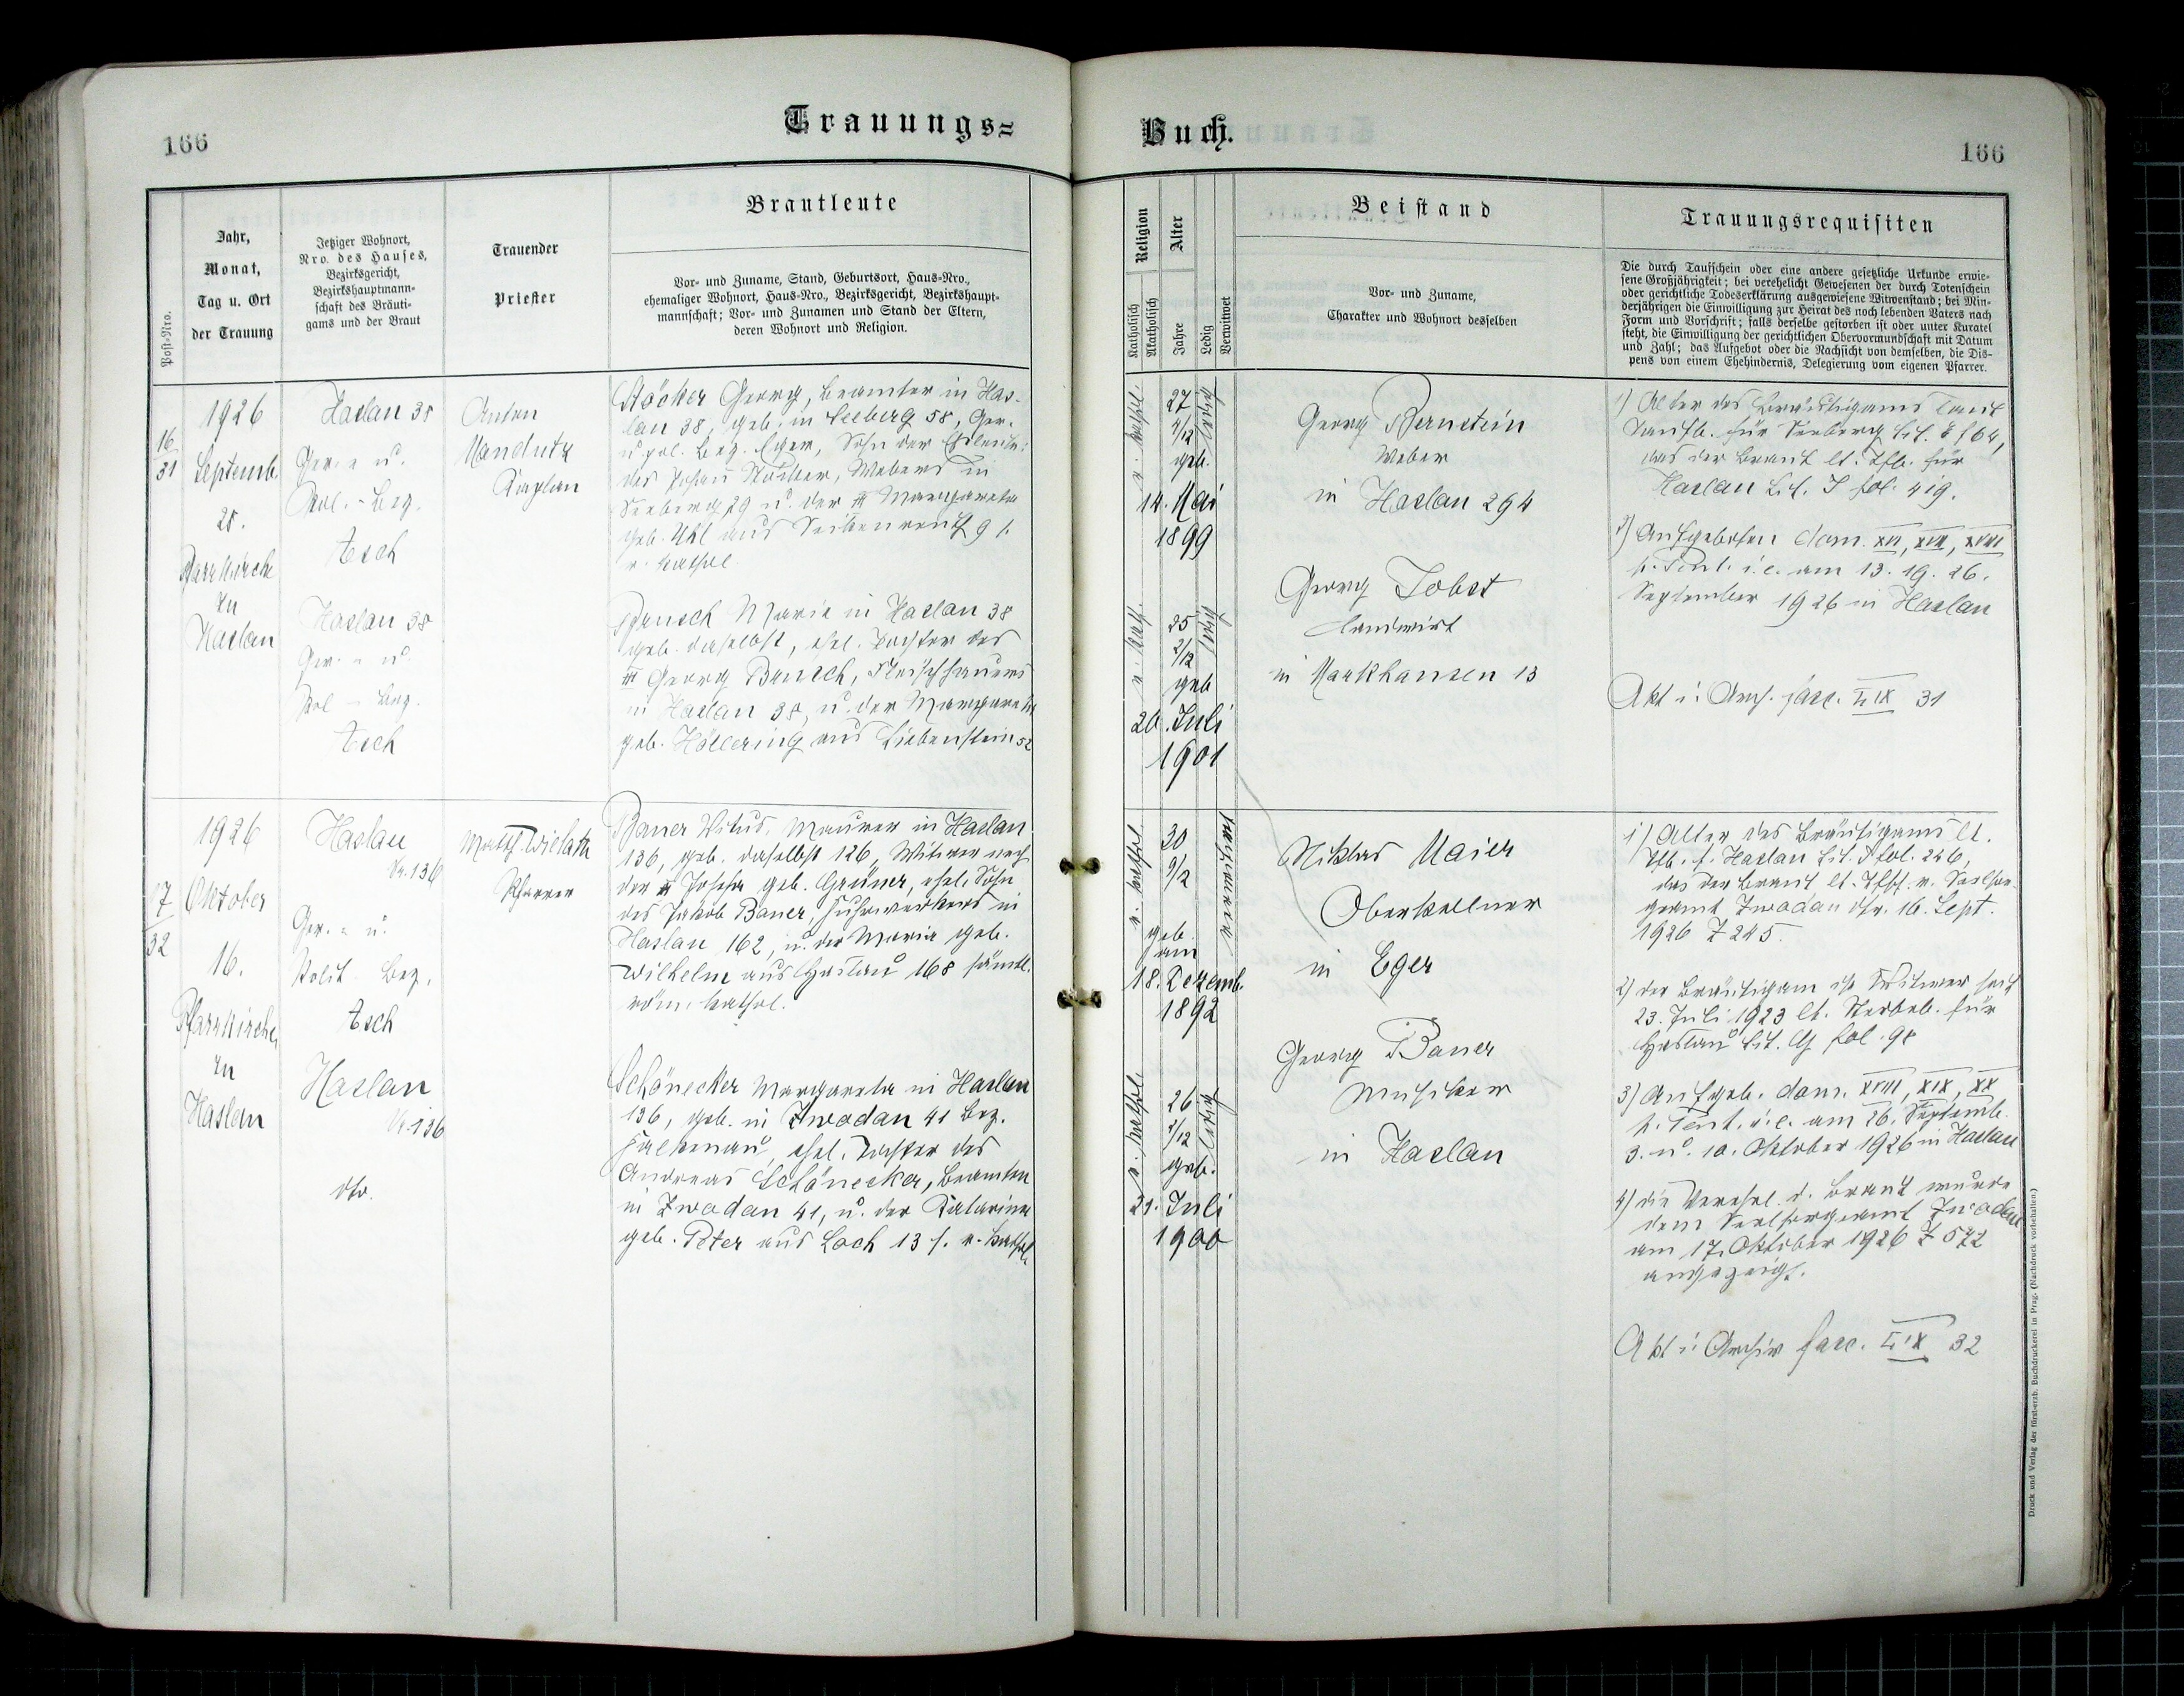 166
Trauungs=
Jahr,
Monat,
Tag u. Ort
der Trauung
Post-Nro.
Jetziger Wohnort,
Nro. des Hauses,
Bezirksgericht,
Bezirkshauptmann-
schaft des Bräuti-
gams und der Braut
Trauender
Priester
Brautleute
Vor- und Zuname, Stand, Geburtsort, Haus-Nro.,
ehemaliger Wohnort, Haus-Nro., Bezirksgericht, Bezirkshaupt-
mannschaft; Vor- und Zunamen und Stand der Eltern,
deren Wohnort und Religion.
16
31
1926
Septemb.
Pfarrkirche
zu
Haslau
Haslau 38
Ger.- u.
Pol.-Bez.
Asch
Haslau 38
Ger.- u.
Pol - Bez.
Asch
Anton
Kaplan
Stöcker Georg, Beamter in Has-
lau 38, geb. in Seeberg 58, Ger.
u. pol. Bez. Eger, Sohn der Eheleute:
des Johann Stöcker, Webers in
Seeberg 29 u. der Margareta
geb. Uhl aus Seichenreuth 9 /.
r. kathol.
Brusch Maria in Haslau 38
geb. daselbst, ehel. Tochter des
Georg Brusch, Fleischhauers
in Haslau 38, u. der Margareta
geb. Höllering aus Liebenstein 52
17
32
1926
Oktober
16.
Pfarrkirche
zu
Haslau
Haslau
Nr. 136
Ger. - u.
Polit. Bez.
Asch
Haslau
Nr. 136
dto.
Math. Wielath
Pfarrer
Bauer Vitus, Maurer in Haslau
136, geb. daselbst 126, Witwer nach
der Josefa geb. Grüner, ehel. Sohn
des Jakob Bauer, Fuhrwerkers in
Haslau 162, u. der Maria geb.
Wilhelm aus Haslau 168 sämtl.
röm. kathol.
Schönecker Margareta in Haslau
136, geb. in Zwodau 41 Bez.
Falkenau, ehel. Tochter des
Andreas Schönecker, Beamten
in Zwodau 41, u. der Katarina
geb. Peter aus Loch 13 /. r. kathol.
Buch.
166
Religion
Katholisch
Akatholisch
Alter
Jahre
Ledig
Verwitwet
Beistand
Vor- und Zuname,
Charakter und Wohnort desselben
Trauungsrequisiten
Die durch Taufschein oder eine andere gesetzliche Urkunde erwie-
sene Großjährigkeit; bei verehelicht Gewesenen der durch Totenschein
oder gerichtliche Todeserklärung ausgewiesene Witwenstand; bei Min-
derjährigen die Einwilligung zur Heirat des noch lebenden Vaters nach
Form und Vorschrift; falls derselbe gestorben ist oder unter Kuratel
steht, die Einwilligung der gerichtlichen Obervormundschaft mit Datum
und Zahl; das Aufgebot oder die Nachsicht von demselben, die Dis-
pens von einem Ehehindernis, Delegierung vom eigenen Pfarrer.
r. kathol.
27
4/12
ledig
geb.
14. Mai
1899
r. kath.
25
2/12
ledig
geb
26. Juli
1901
Georg Bernstein
Weber
in Haslau 294
Georg Jobst
Landwirt
in Markhausen 13
1) Alter des Bräutigams laut
Taufb. für Seeberg Lit.
das der Braut lt. Tfb. für
Haslau Lit. I fol. 419.
2) Aufgeboten dom. XVI, XVII, XVIII
p. Pent. i. e. am 13. 19. 26.
September 1926 in Haslau
Akt i. Arch. fasc. 31
r. kathol.
30
9/12
geb.
am
18. Dezemb.
1892
r. kathol.
26
2/12
ledig
geb.
21. Juli
1900
Niklas Maier
Oberkellner
in Eger
Georg Bauer
Musiker
in Haslau
1) Alter des Bräutigams lt.
Tfb. f. Haslau Lit. fol. 226,
das der Braut lt. Tfsch. v. Seelsor-
geamt Zwodau 16. Sept.
1926 Z 245.
2) der Bräutigam ist Witwer seit
23. Juli 1923 lt. Sterbeb. für
Haslau Lit. G fol. 98
3) Aufgeb. dom. XVIII, XIX, XX
p. Pent. i. e. am 26. Septemb.
3. u. 10. Oktober 1926 in Haslau
4) die Verehel. d. Braut wurde
dem Seelsorgeamt Zwodau
am 17. Oktober 1926 Z 572
angezeigt.
Akt i. Archiv fasc. 32
Druck und Verlag der fürst-erzb. Buchdruckerei in Prag. (Nachdruck vorbehalten.)